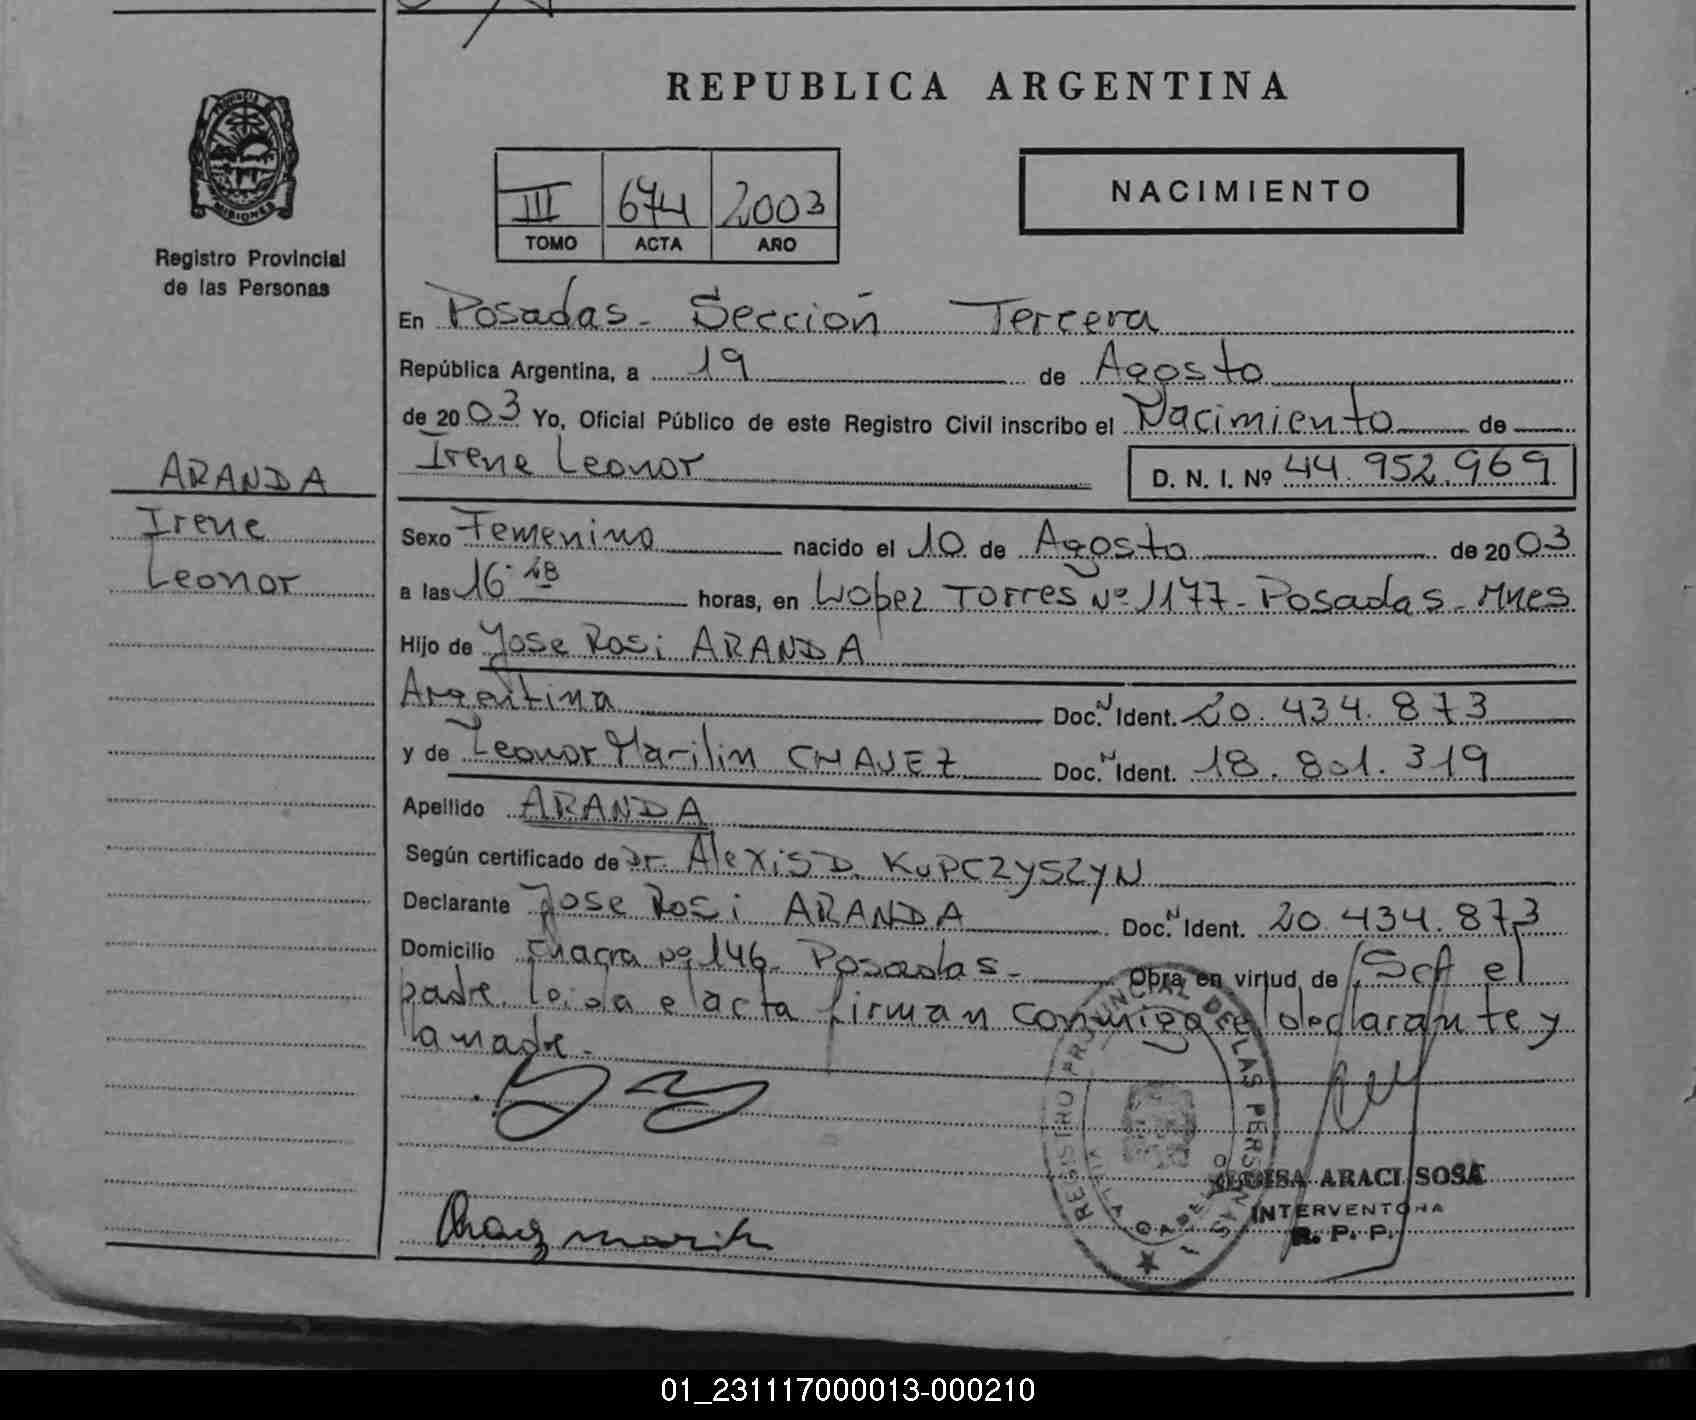 REPUBLICA ARGENTINA
PROVINCIA DE
MISIONES
Registro Provincial
de las Personas
III 674 2003
TOMO ACTA AÑO
NACIMIENTO
En Posadas - Sección Tercera
República Argentina, a 19 de Agosto
de 2003 Yo, Oficial Público de este Registro Civil inscribo el Nacimiento de
Irene Leonor D. N. I. Nº 44.952.969
ARANDA
Irene
Leonor
Sexo Femenino nacido el 10 de Agosto de 2003
a las 16:28 horas, en Lopez Torres Nº 1177 - Posadas - Mnes
Hijo de Jose Rosi ARANDA
Argentina Doc. N Ident. 20.434.873
y de Leonor Marilin CHAVEZ Doc. N Ident. 18.801.319
Apellido ARANDA
Según certificado de Dr. Alexis D. KUPCZYSZYN
Declarante Jose Rosi ARANDA Doc. N Ident. 20.434.873
Domicilio Chacra Nº 146 - Posadas - Obra en virtud de Scf el
padre. leida el acta firman conmigo el declarante y
la madre.-
REGISTRO PROVINCIAL DE LAS PERSONAS
ARACI SOSA
INTERVENTORA
R. P. P.
01_231117000013-000210